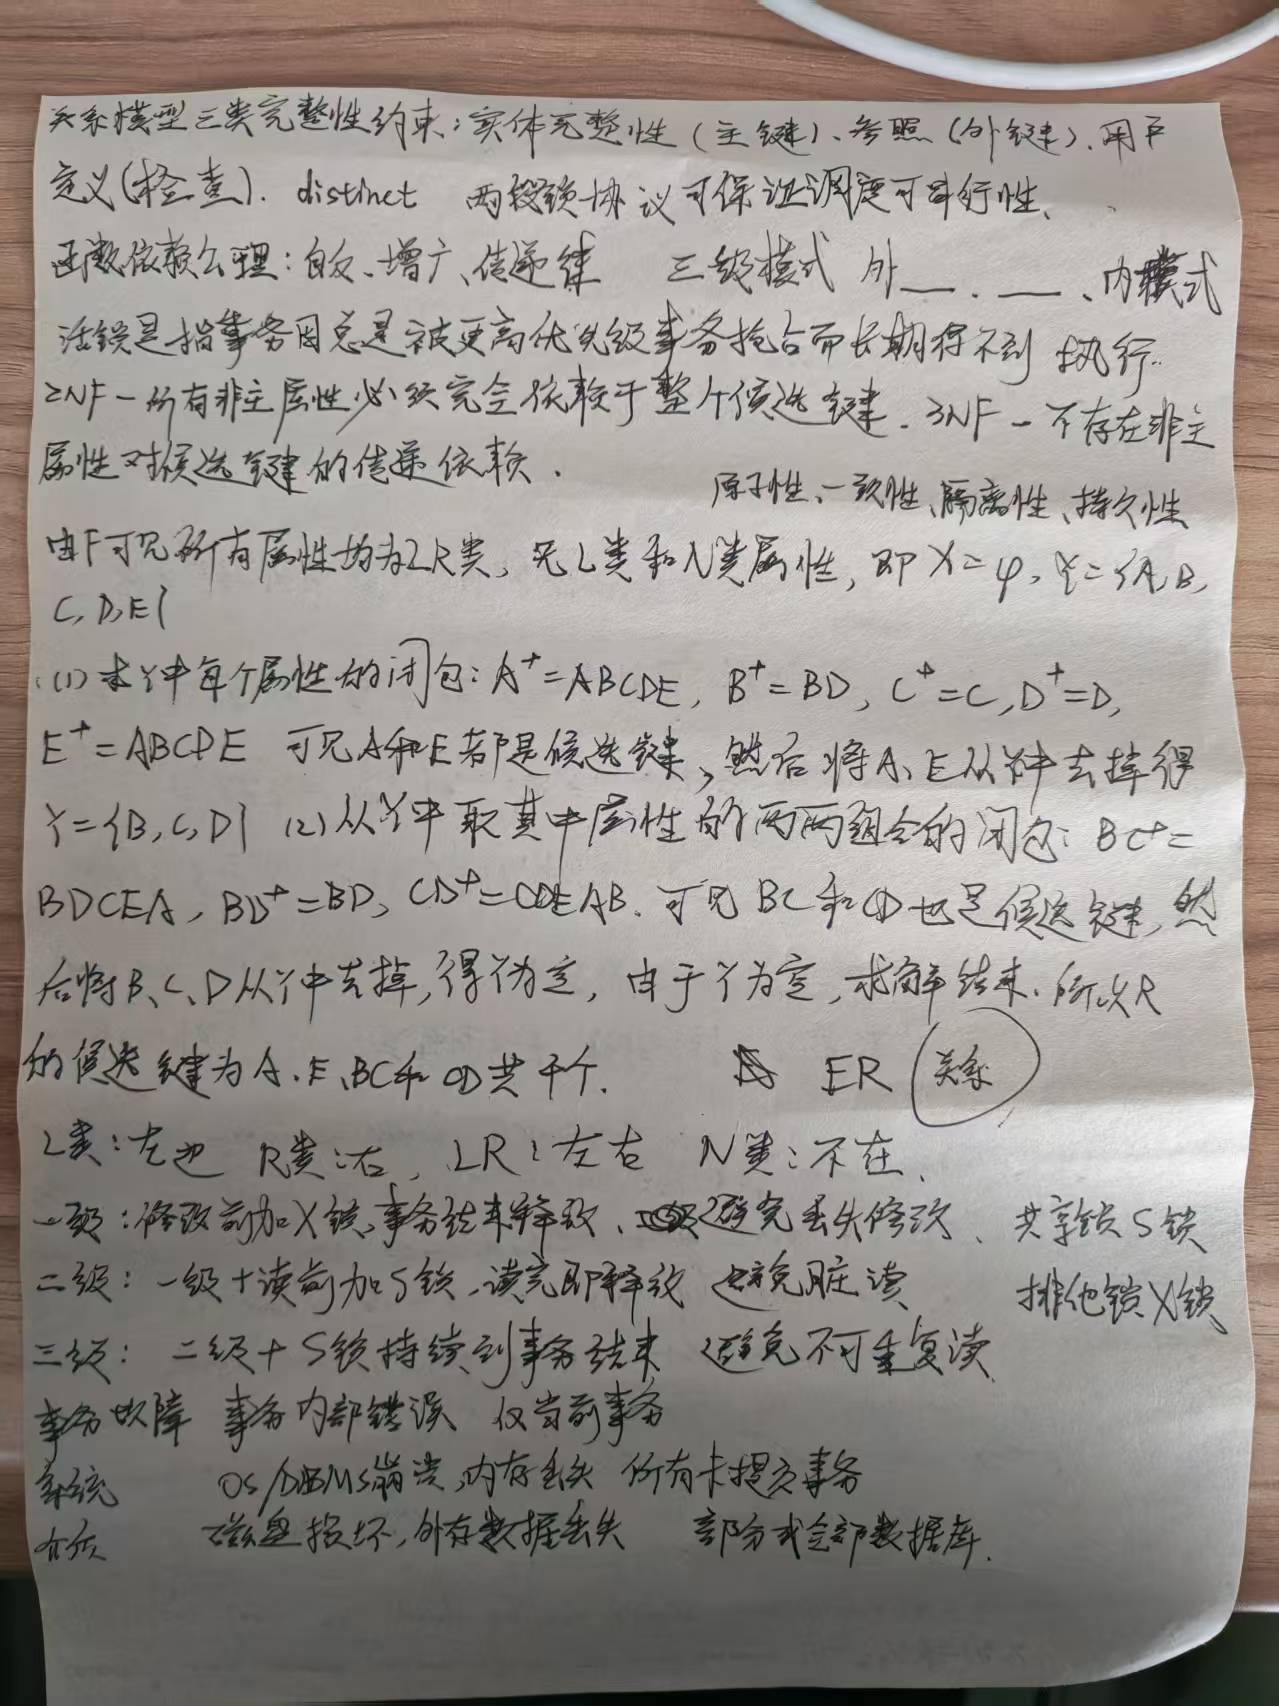 关系模型三类完整性约束：实体完整性（主键）、参照（外键）、用户
定义（检查）. distinct 两段锁协议可保证调度可串行性、
函数依赖公理：自反、增广、传递律 三级模式 外__、__、内模式
活锁是指事务因总是被更高优先级事务抢占而长期得不到执行.
2NF-所有非主属性必须完全依赖于整个候选键. 3NF-不存在非主
属性对候选键的传递依赖.
原子性、一致性、隔离性、持久性
由F可见所有属性均为LR类，无L类和N类属性，即X=φ，Y={A,B,
C,D,E}
(1)求Y中每个属性的闭包：A⁺=ABCDE，B⁺=BD，C⁺=C，D⁺=D，
E⁺=ABCDE 可见A和E都是候选键，然后将A、E从Y中去掉得
Y={B,C,D} (2)从Y中取其中属性的两两组合的闭包：BC⁺=
BDCEA，BD⁺=BD，CD⁺=CDEAB. 可见BC和CD也是候选键，然
后将B、C、D从Y中去掉，得Y为空，由于Y为空，求解结束. 所以R
的候选键为A、E、BC和CD共4个. ER 关系
L类：左边 R类：右，LR：左右 N类：不在.
一级：修改前加X锁，事务结束释放、避免丢失修改、 共享锁S锁
二级：一级+读前加S锁，读完即释放 避免脏读 排他锁X锁
三级：二级+S锁持续到事务结束 避免不可重复读
事务故障 事务内部错误 仅当前事务
系统 OS/DBMS崩溃，内存丢失 所有未提交事务
介质 磁盘损坏，外存数据丢失 部分或全部数据库.